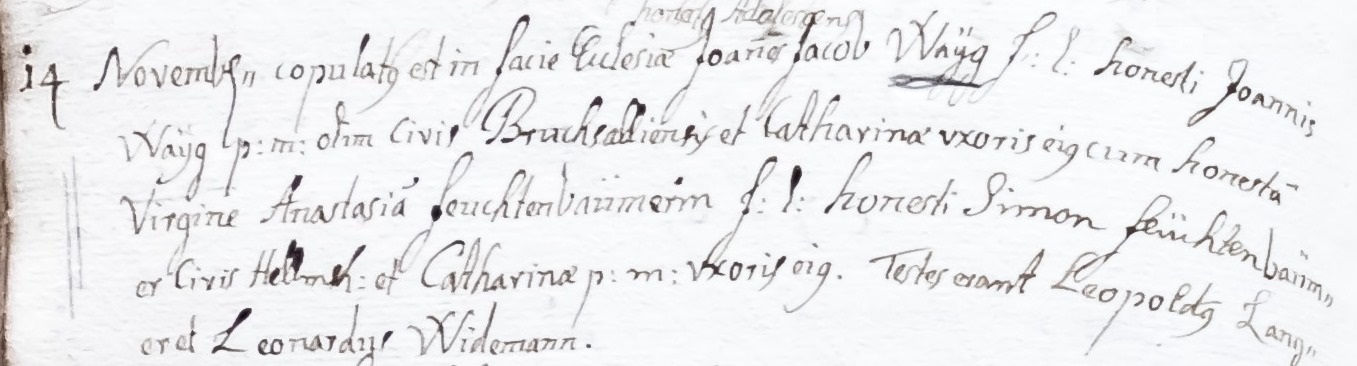 honestq Adolescens
14 Novembr„ copulatq est in facie Ecclesiæ Joañes Jacob Waÿg f: l: honesti Joannis
Waÿg p: m: olim Civis Bruchsalliensis et Catharinæ uxoris eiq cum honestâ
Virgine Anastasiâ feuchtenbäumerin f: l: honesti Simon feüchtenbäüm„
er Civis et Catharinæ p: m: uxoris eiq. Testes erant Leopoldq Lang„
er et Leonardus Widemann.